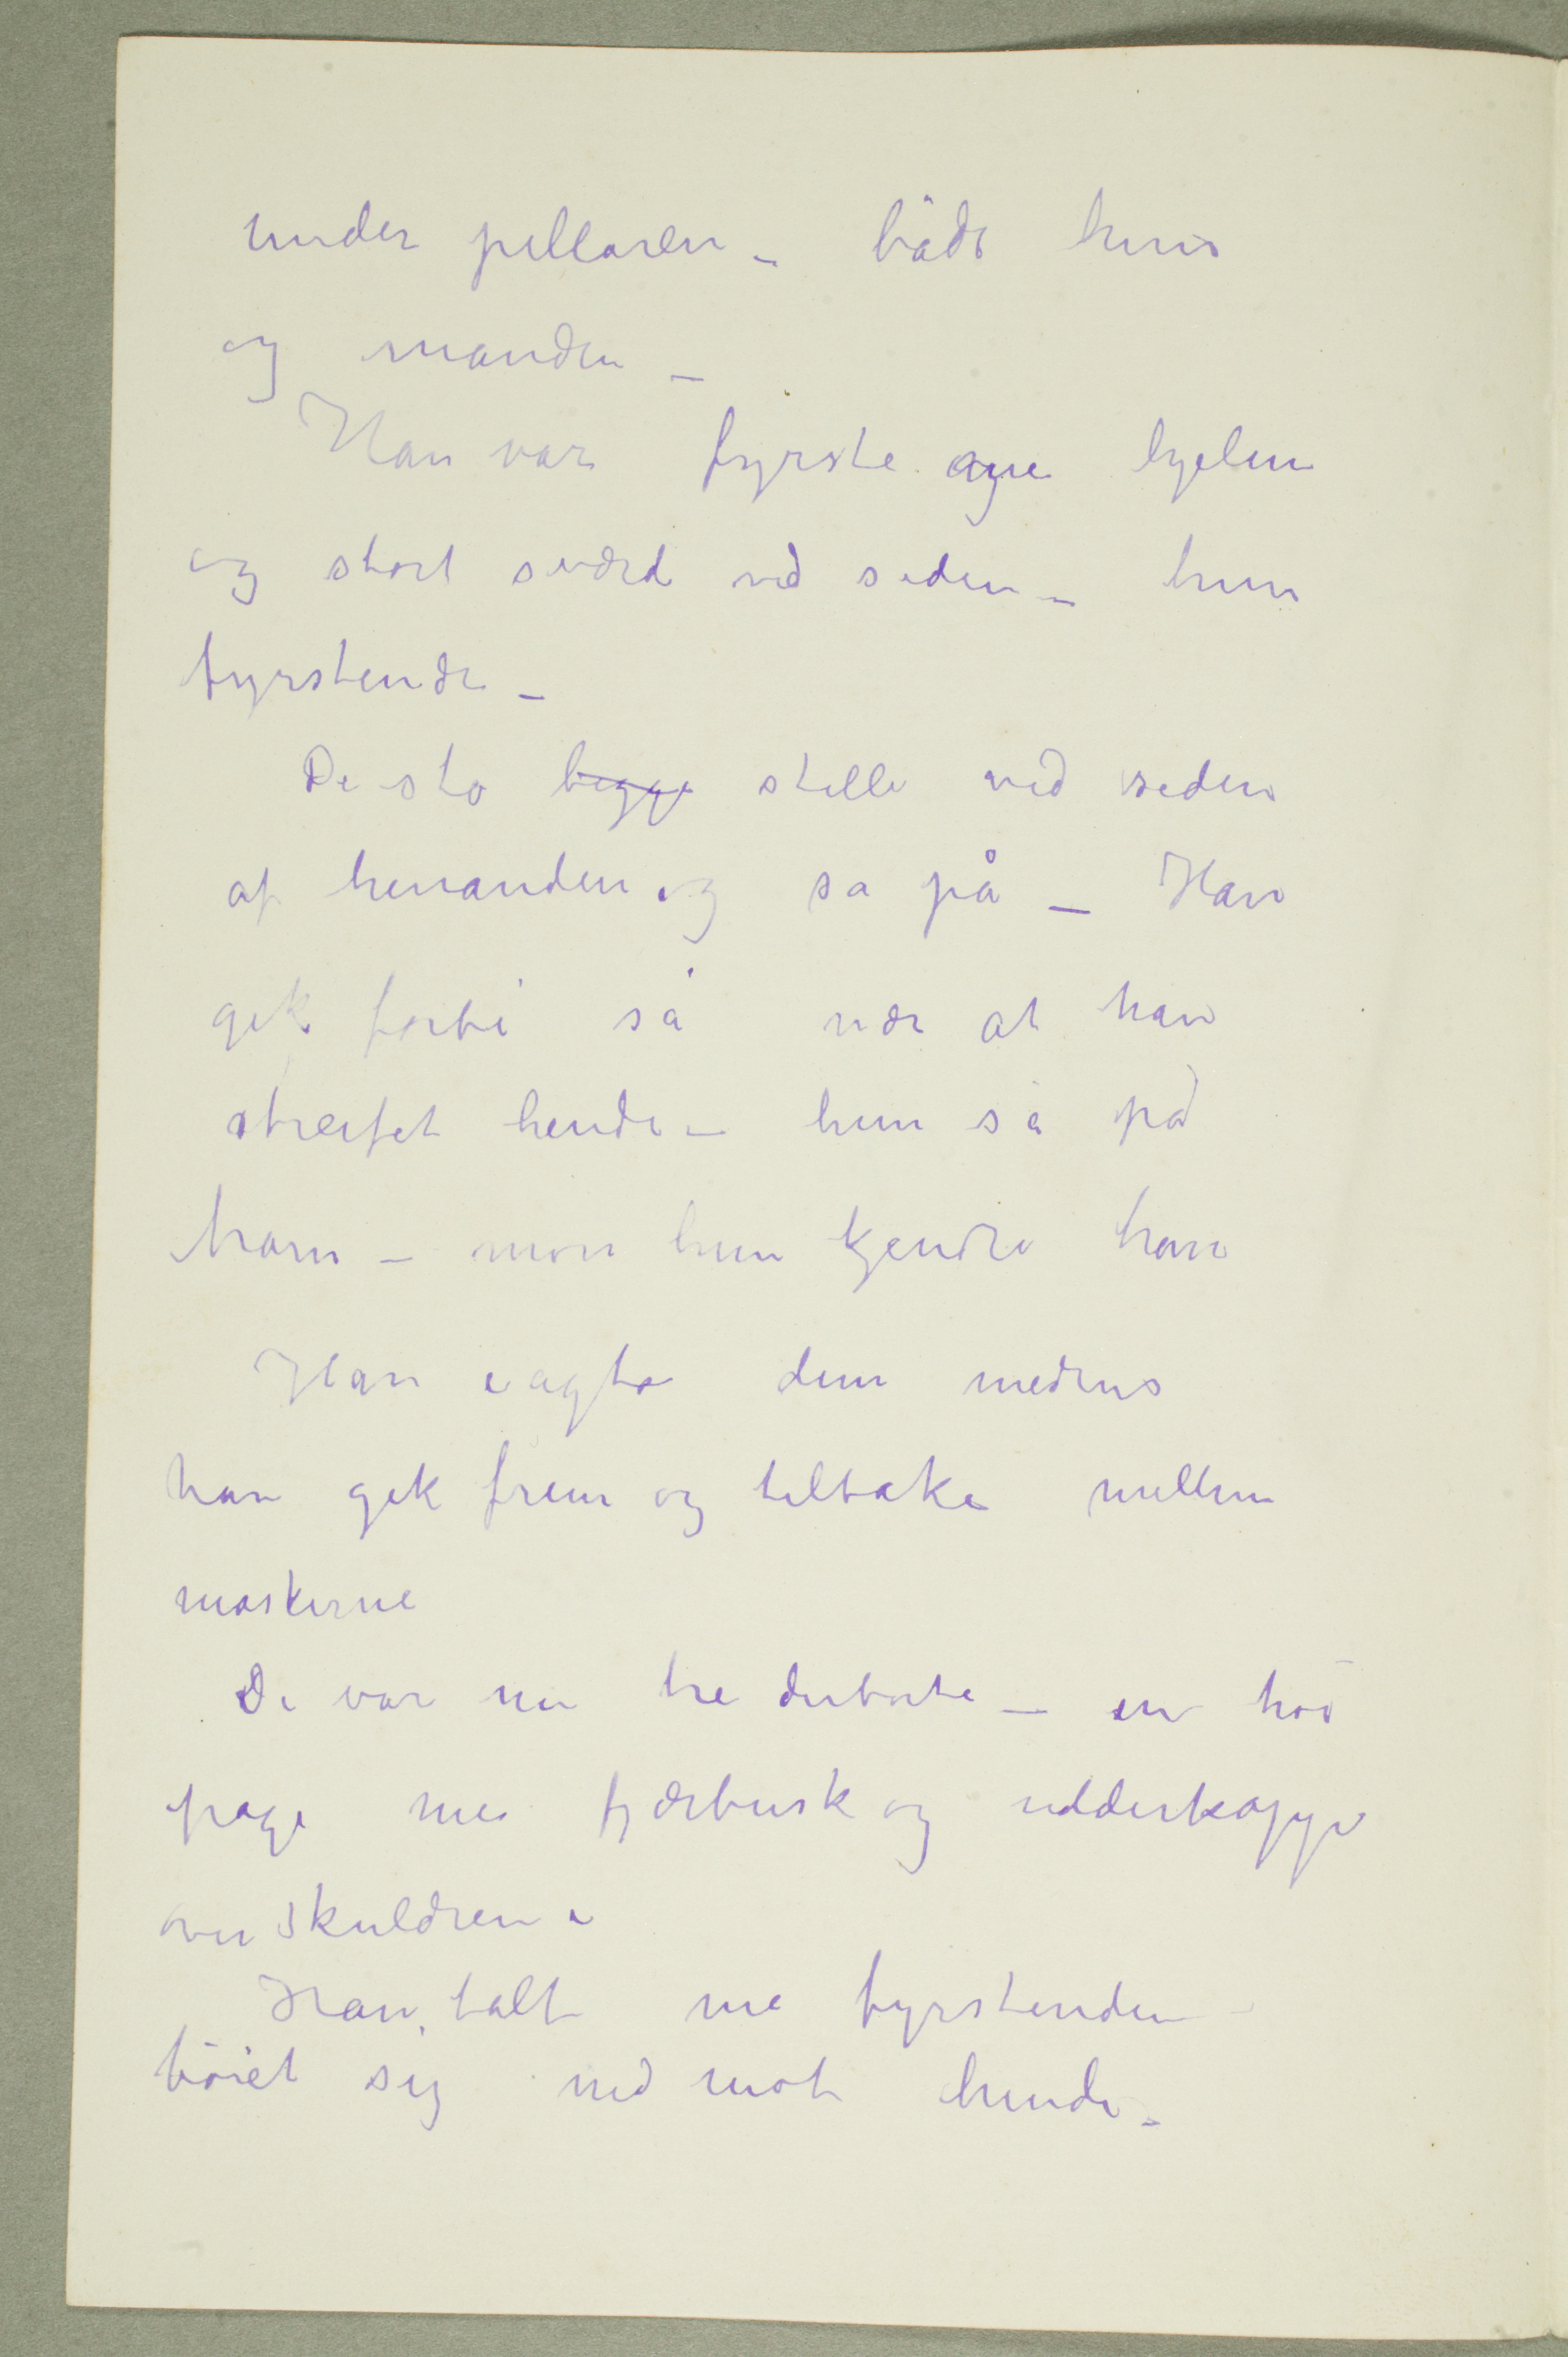 under pillaren – både hun
og manden –
Han var fyrste hjelm
og stort sværd ved siden – hun
fyrstinde –
De sto begge stille ved siden
af hinanden og sa på – Han
gik forbi så nær at han
streifet hende – hun så på
ham – mon hun kjendte ham
Han iagtto dem medens
han gik frem og tilbake mellem
maskerne
De var nu tre derborte – en höi
page me fjærbusk og ridderkappe
over skuldrene
Han talt me fyrstinden –
böiet sig ned mot hende –